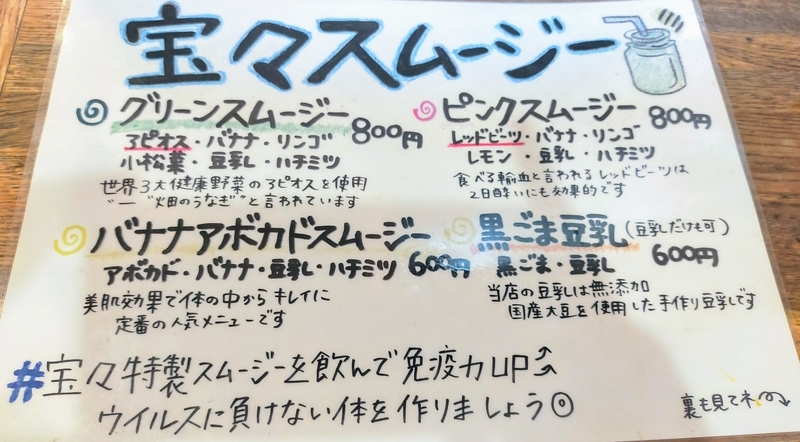 宝々スムージー
グリーンスムージー 800円
アピオス・バナナ・リンゴ
小松菜・豆乳・ハチミツ
世界3大健康野菜のアピオスを使用
"畑のうなぎ"と言われています
ピンクスムージー 800円
レッドビーツ・バナナ・リンゴ
レモン・豆乳・ハチミツ
食べる輸血と言われるレッドビーツは
2日酔いにも効果的です
バナナアボカドスムージー
アボカド・バナナ・豆乳・ハチミツ 600円
美肌効果で体の中からキレイに
定番の人気メニューです
黒ごま豆乳(豆乳だけも可)
黒ごま・豆乳 600円
当店の豆乳は無添加
国産大豆を使用した手作り豆乳です
#宝々特製スムージーを飲んで免疫力UP
ウイルスに負けない体を作りましょう
裏も見てネ